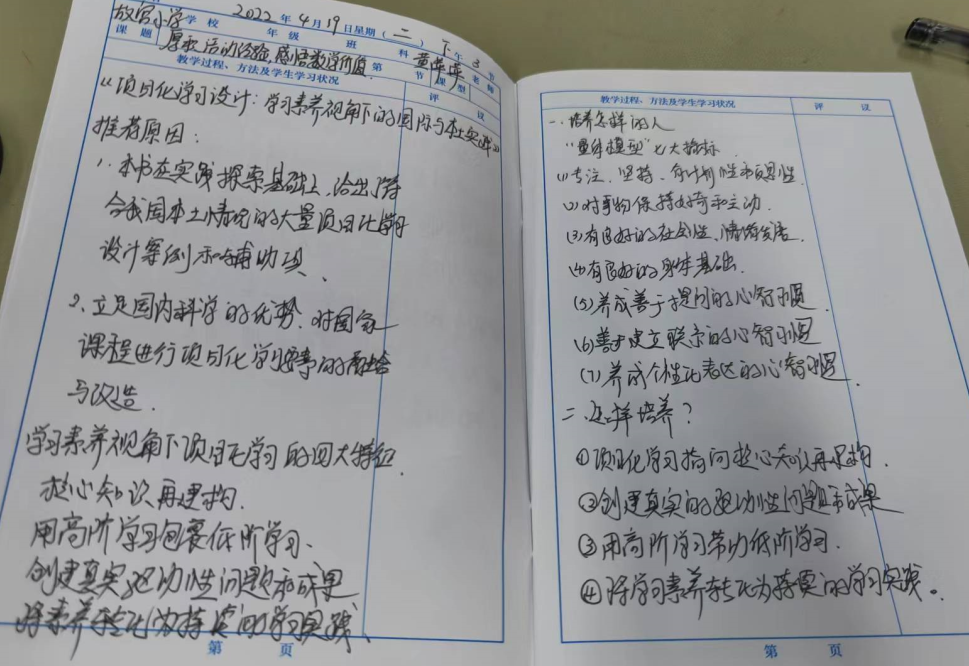 放宫小学 学校 2022年4月19日星期(二)下午3节
课题 厚积活动经验,感悟数学价值 年级 班 第 科 节 课型 老师
教学过程、方法及学生学习状况 评 议
《项目化学习设计:学习素养视角下的国际与本土实践》
推荐原因:
1、本书在实践探索基础上,给出了符
合我国本土情境的大量项目化学习
设计案例和辅助项、
2、立足国内科学的优势,对国家
课程进行项目化学习要素的融合
与改造.
学习素养视角下项目化学习的四大特征
核心知识再建构.
用高阶学习包裹低阶学习、
创建真实驱动性问题和成果
将素养转化为持续的学习实践、
第 页
教学过程、方法及学生学习状况 评 议
一、培养怎样的人
七大指标
(1)专注、坚持、有计划性和反思性
(2)对事物保持好奇和主动.
(3)有良好的社会性、情绪发展.
(4)有良好的身体基础.
(5)养成善于提问的心智习惯
(6)善于建立联系的心智习惯
(7)养成个性化表达的心智习惯.
二、怎样培养?
①项目化学习指向核心知识再建构.
②创建真实的驱动性问题和成果
③用高阶学习带动低阶学习.
④将学习素养转化为持续的学习实践。
第 页